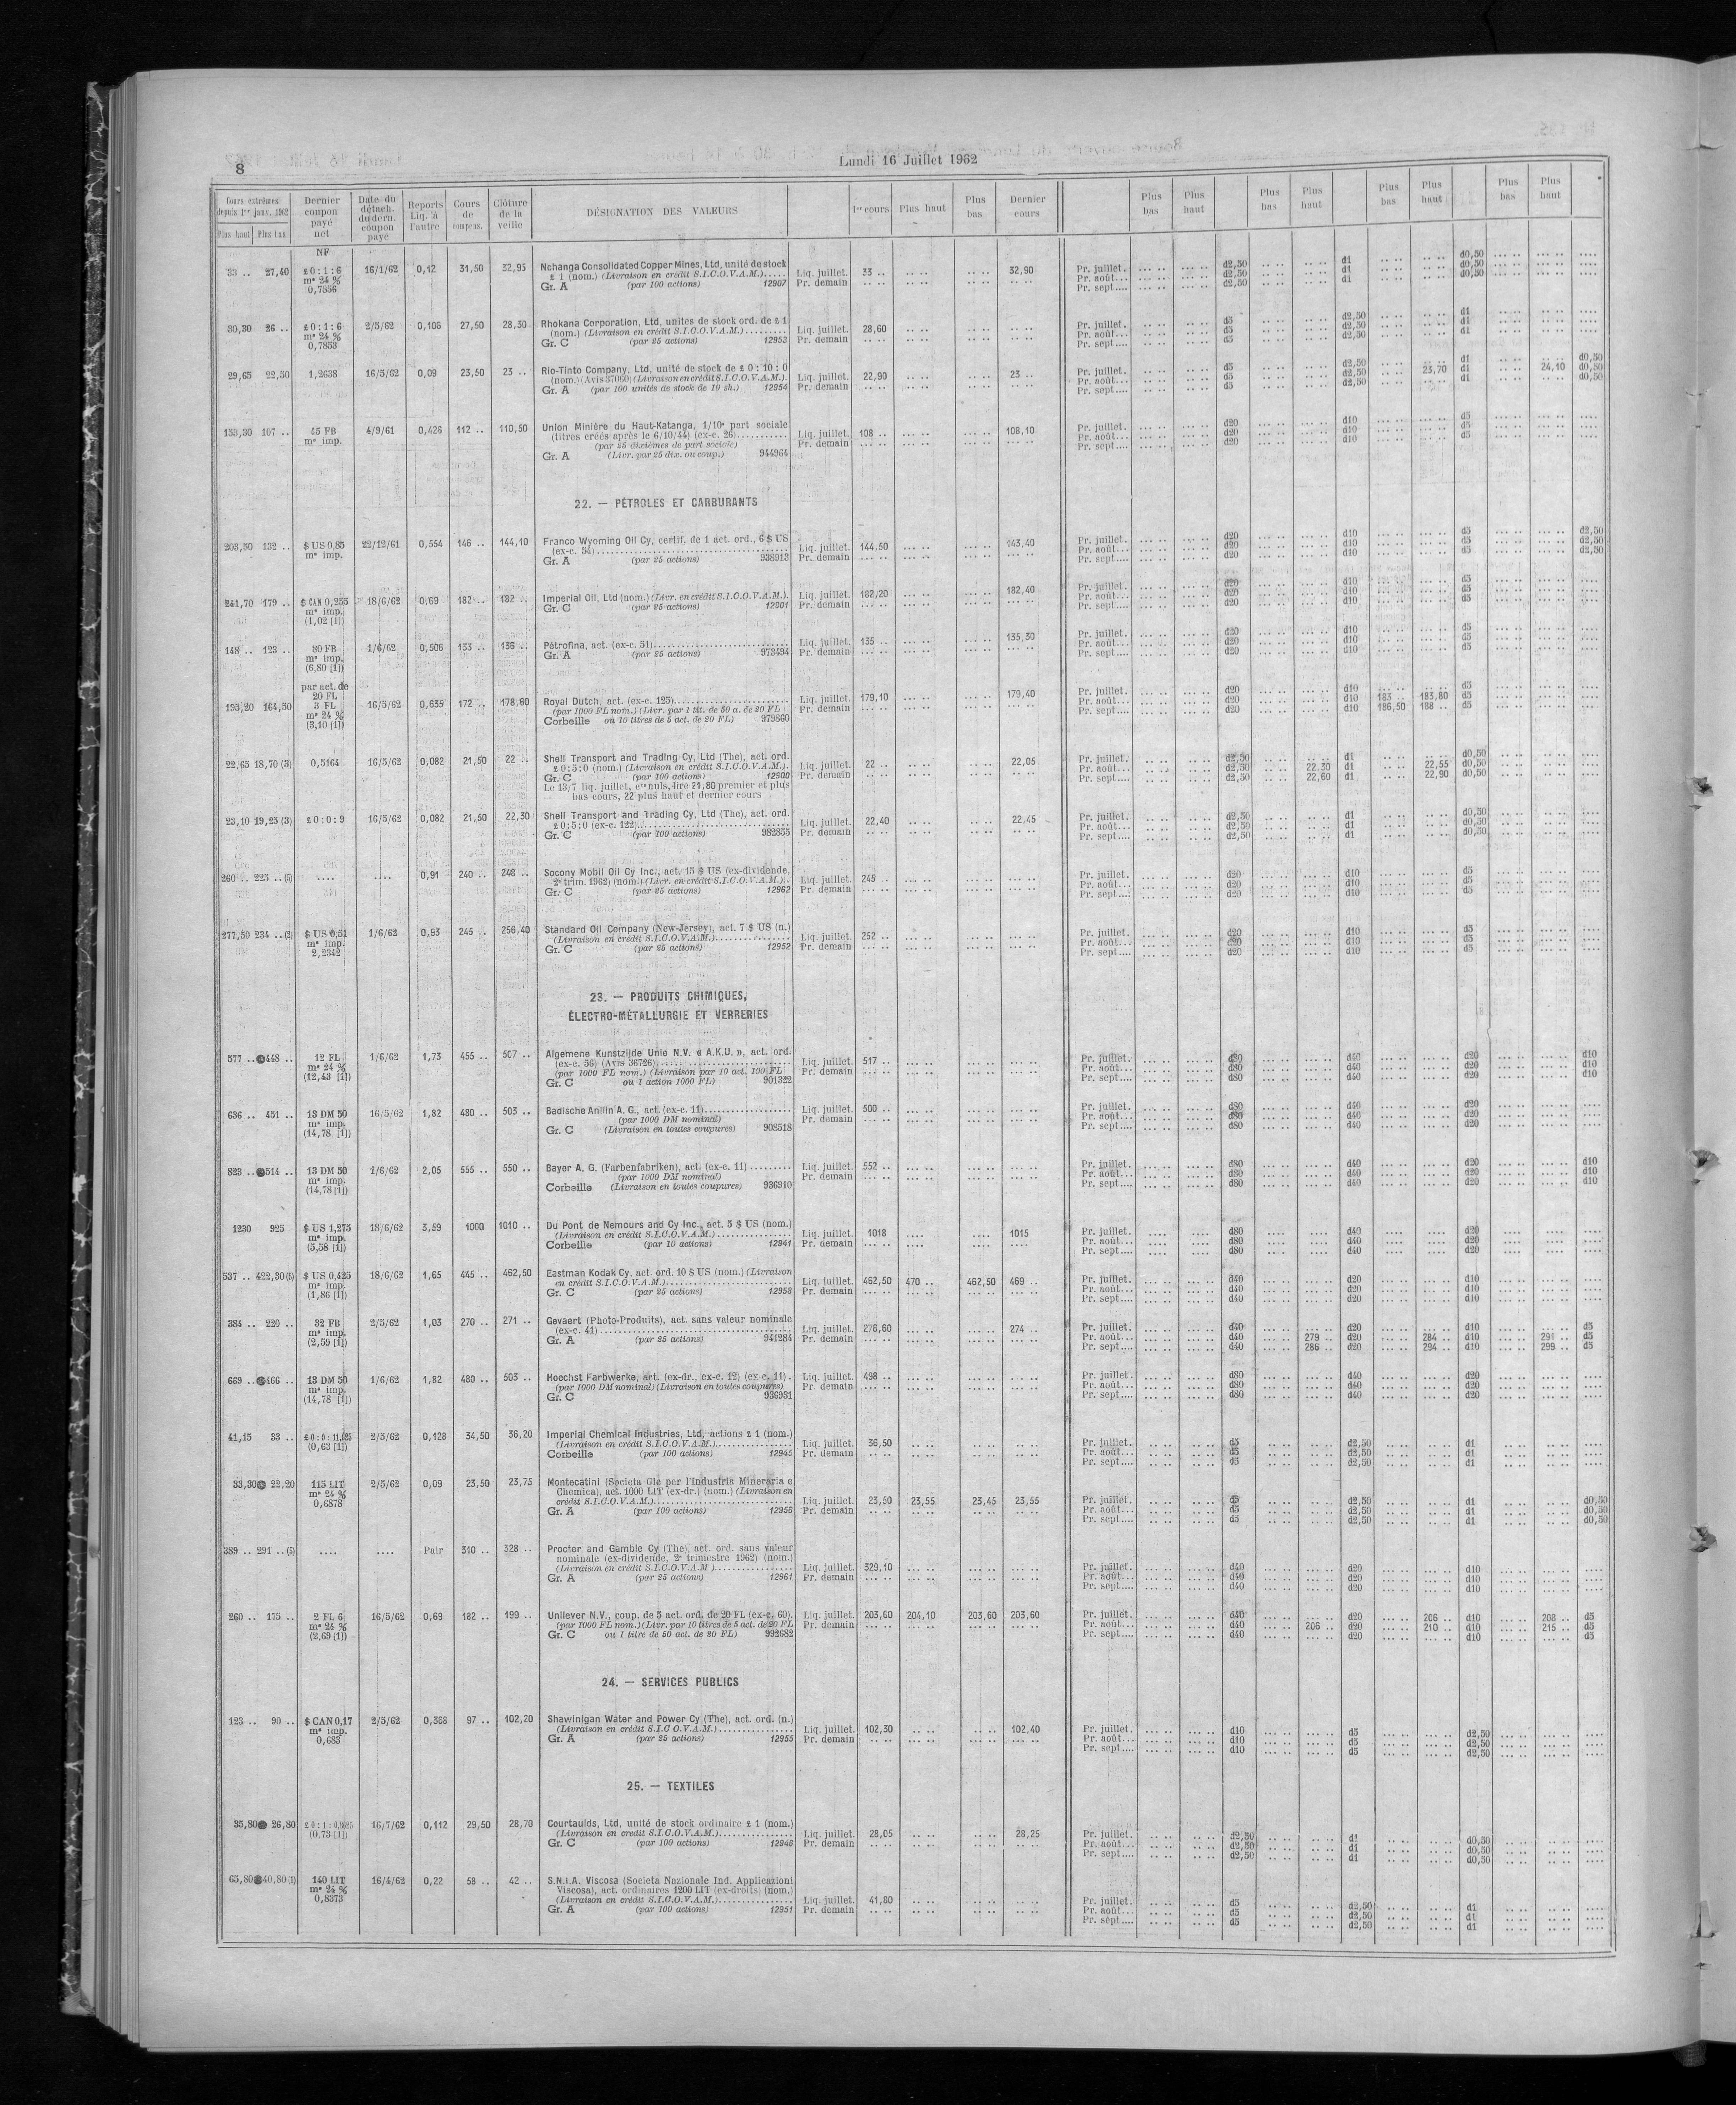 8
Lundi 16 Juillet 1962
Cours extrêmes depuis 1er janv. 1962 Plus haut Plus bas | Dernier coupon payé net | Date du détach. du dern. coupon payé | Reports Liq. à l'autre | Cours de compens. | Clôture de la veille | DÉSIGNATION DES VALEURS | 1er cours | Plus haut | Plus bas | Dernier cours | Plus bas | Plus haut | Plus bas | Plus haut | Plus bas | Plus haut | Plus bas | Plus haut
NF
33 .. 27,40 £ 0 : 1 : 6 16/1/62 0,12 31,50 32,95 Nchanga Consolidated Copper Mines, Ltd, unité de stock
m* 24 % 0,7856 £ 1 (nom.) (Livraison en crédit S.I.C.O.V.A.M.)..... Liq. juillet. 33 .. 32,90 Pr. juillet. d2,50 d1 d0,50
Gr. A (par 100 actions) 12907 Pr. demain Pr. août... d2,50 d1 d0,50
Pr. sept.... d2,50 d1 d0,50
30,30 26 .. £ 0 : 1 : 6 2/5/62 0,106 27,50 28,30 Rhokana Corporation, Ltd, unites de stock ord. de £ 1
m* 24 % 0,7853 (nom.) (Livraison en crédit S.I.C.O.V.A.M.)........ Liq. juillet. 28,60 Pr. juillet. d5 d2,50 d1
Gr. C (par 25 actions) 12953 Pr. demain Pr. août... d5 d2,50 d1
Pr. sept.... d5 d2,50 d1
29,65 22,50 1,2638 16/5/62 0,09 23,50 23 .. Rio-Tinto Company, Ltd, unité de stock de £ 0 : 10 : 0
(nom.) (Avis 37060) (Livraison en crédit S.I.C.O.V.A.M.). Liq. juillet. 22,90 23 .. Pr. juillet. d5 d2,50 d1 d0,50
Gr. A (par 100 unités de stock de 10 sh.) 12954 Pr. demain Pr. août... d5 d2,50 23,70 d1 24,10 d0,50
Pr. sept.... d5 d2,50 d1 d0,50
153,30 107 .. 45 FB m* imp. 4/9/61 0,426 112 .. 110,50 Union Minière du Haut-Katanga, 1/10e part sociale
(titres créés après le 6/10/44) (ex-c. 26)........... Liq. juillet. 108 .. 108,10 Pr. juillet. d20 d10 d5
(par 25 dixièmes de part sociale) Pr. demain Pr. août... d20 d10 d5
Gr. A (Livr. par 25 dix. ou coup.) 944964 Pr. sept.... d20 d10 d5
22. — PÉTROLES ET CARBURANTS
203,50 132 .. $ US 0,85 m* imp. 22/12/61 0,554 146 .. 144,10 Franco Wyoming Oil Cy, certif. de 1 act. ord., 6 $ US
(ex-c. 54)........ Liq. juillet. 144,50 143,40 Pr. juillet. d20 d10 d5 d2,50
Gr. A (par 25 actions) 938913 Pr. demain Pr. août... d20 d10 d5 d2,50
Pr. sept.... d20 d10 d5 d2,50
241,70 179 .. $ CAN 0,255 m* imp. (1,02 [1]) 18/6/62 0,69 182 .. 182 .. Imperial Oil, Ltd (nom.) (Livr. en crédit S.I.C.O.V.A.M.). Liq. juillet. 182,20 182,40 Pr. juillet. d20 d10 d5
Gr. C (par 25 actions) 12901 Pr. demain Pr. août... d20 d10 d5
Pr. sept.... d20 d10 d5
148 .. 123 .. 80 FB m* imp. (6,80 [1]) 1/6/62 0,506 133 .. 136 .. Pétrofina, act. (ex-c. 51)........ Liq. juillet. 135 .. 135,30 Pr. juillet. d20 d10 d5
Gr. A (par 25 actions) 973494 Pr. demain Pr. août... d20 d10 d5
Pr. sept.... d20 d10 d5
par act. de 20 FL
193,20 164,50 3 FL m* 24 % (3,10 [1]) 16/5/62 0,635 172 .. 178,60 Royal Dutch, act. (ex-c. 123)........ Liq. juillet. 179,10 179,40 Pr. juillet. d20 d10 d5
(par 1000 FL nom.) (Livr. par 1 tit. de 50 a. de 20 FL Pr. demain Pr. août... d20 d10 183 .. 183,80 d5
Corbeille ou 10 titres de 5 act. de 20 FL) 979860 Pr. sept.... d20 d10 186,50 188 .. d5
22,65 18,70 (3) 0,5164 16/5/62 0,082 21,50 22 .. Shell Transport and Trading Cy, Ltd (The), act. ord.
£ 0 : 5 : 0 (nom.) (Livraison en crédit S.I.C.O.V.A.M.). Liq. juillet. 22 .. 22,05 Pr. juillet. d2,50 d1 d0,50
Gr. C (par 100 actions) 12900 Pr. demain Pr. août... d2,50 22,30 d1 22,55 d0,50
Le 13/7 liq. juillet, crs nuls, lire 21,80 premier et plus Pr. sept.... d2,50 22,60 d1 22,90 d0,50
bas cours, 22 plus haut et dernier cours
23,10 19,25 (3) £ 0 : 0 : 9 16/5/62 0,082 21,50 22,30 Shell Transport and Trading Cy, Ltd (The), act. ord.
£ 0 : 5 : 0 (ex-c. 122)........ Liq. juillet. 22,40 22,45 Pr. juillet. d2,50 d1 d0,50
Gr. C (par 100 actions) 982855 Pr. demain Pr. août... d2,50 d1 d0,50
Pr. sept.... d2,50 d1 d0,50
260 .. 225 .. (5) .... .... 0,91 240 .. 248 .. Socony Mobil Oil Cy Inc., act. 15 $ US (ex-dividende,
2e trim. 1962) (nom.) (Livr. en crédit S.I.C.O.V.A.M.).. Liq. juillet. 245 .. Pr. juillet. d20 d10 d5
Gr. C (par 25 actions) 12962 Pr. demain Pr. août... d20 d10 d5
Pr. sept.... d20 d10 d5
277,50 234 .. (2) $ US 0,51 m* imp. 2,2342 1/6/62 0,93 245 .. 256,40 Standard Oil Company (New-Jersey), act. 7 $ US (n.)
(Livraison en crédit S.I.C.O.V.A.M.)........ Liq. juillet. 252 .. Pr. juillet. d20 d10 d5
Gr. C (par 25 actions) 12952 Pr. demain Pr. août... d20 d10 d5
Pr. sept.... d20 d10 d5
23. — PRODUITS CHIMIQUES,
ÉLECTRO-MÉTALLURGIE ET VERRERIES
577 .. 448 .. 12 FL m* 24 % (12,43 [1]) 1/6/62 1,73 455 .. 507 .. Algemene Kunstzijde Unie N.V. « A.K.U. », act. ord.
(ex-c. 56) (Avis 36726)........ Liq. juillet. 517 .. Pr. juillet. d80 d40 d20 d10
(par 1000 FL nom.) (Livraison par 10 act. 100 FL Pr. demain Pr. août... d80 d40 d20 d10
Gr. C ou 1 action 1000 FL) 901322 Pr. sept.... d80 d40 d20 d10
636 .. 451 .. 13 DM 50 m* imp. (14,78 [1]) 16/5/62 1,82 480 .. 503 .. Badische Anilin A. G., act. (ex-c. 11)........ Liq. juillet. 500 .. Pr. juillet. d80 d40 d20
(par 1000 DM nominal) Pr. demain Pr. août... d80 d40 d20
Gr. C (Livraison en toutes coupures) 908518 Pr. sept.... d80 d40 d20
823 .. 514 .. 13 DM 50 m* imp. (14,78 [1]) 1/6/62 2,05 555 .. 550 .. Bayer A. G. (Farbenfabriken), act. (ex-c. 11)......... Liq. juillet. 552 .. Pr. juillet. d80 d40 d20 d10
(par 1000 DM nominal) Pr. demain Pr. août... d80 d40 d20 d10
Corbeille (Livraison en toutes coupures) 936910 Pr. sept.... d80 d40 d20 d10
1230 925 $ US 1,275 m* imp. (5,58 [1]) 18/6/62 3,59 1000 1010 .. Du Pont de Nemours and Cy Inc., act. 5 $ US (nom.)
(Livraison en crédit S.I.C.O.V.A.M.)........ Liq. juillet. 1018 1015 Pr. juillet. d80 d40 d20
Corbeille (par 10 actions) 12941 Pr. demain Pr. août... d80 d40 d20
Pr. sept.... d80 d40 d20
537 .. 422,30 (5) $ US 0,425 m* imp. (1,86 [1]) 18/6/62 1,65 445 .. 462,50 Eastman Kodak Cy, act. ord. 10 $ US (nom.) (Livraison
en crédit S.I.C.O.V.A.M.)........ Liq. juillet. 462,50 470 .. 462,50 469 .. Pr. juillet. d40 d20 d10
Gr. C (par 25 actions) 12958 Pr. demain Pr. août... d40 d20 d10
Pr. sept.... d40 d20 d10
384 .. 220 .. 32 FB m* imp. (2,59 [1]) 2/5/62 1,03 270 .. 271 .. Gevaert (Photo-Produits), act. sans valeur nominale
(ex-c. 41)........ Liq. juillet. 276,60 274 .. Pr. juillet. d40 d20 d10 d5
Gr. A (par 25 actions) 941284 Pr. demain Pr. août... d40 279 .. d20 284 .. d10 291 .. d5
Pr. sept.... d40 286 .. d20 294 .. d10 299 .. d5
669 .. 466 .. 13 DM 50 m* imp. (14,78 [1]) 1/6/62 1,82 480 .. 503 .. Hoechst Farbwerke, act. (ex-dr., ex-c. 12) (ex-c. 11). Liq. juillet. 498 .. Pr. juillet. d80 d40 d20
(par 1000 DM nominal) (Livraison en toutes coupures) Pr. demain Pr. août... d80 d40 d20
Gr. C 936931 Pr. sept.... d80 d40 d20
41,15 33 .. £ 0 : 0 : 11,025 (0,63 [1]) 2/5/62 0,128 34,50 36,20 Imperial Chemical Industries, Ltd, actions £ 1 (nom.)
(Livraison en crédit S.I.C.O.V.A.M.)........ Liq. juillet. 36,50 Pr. juillet. d5 d2,50 d1
Corbeille (par 100 actions) 12945 Pr. demain Pr. août... d5 d2,50 d1
Pr. sept.... d5 d2,50 d1
33,30 22,20 115 LIT m* 24 % 0,6878 2/5/62 0,09 23,50 23,75 Montecatini (Societa Gle per l'Industria Mineraria e
Chemica), act. 1000 LIT (ex-dr.) (nom.) (Livraison en
crédit S.I.C.O.V.A.M.)........ Liq. juillet. 23,50 23,55 23,45 23,55 Pr. juillet. d5 d2,50 d1 d0,50
Gr. A (par 100 actions) 12956 Pr. demain Pr. août... d5 d2,50 d1 d0,50
Pr. sept.... d5 d2,50 d1 d0,50
389 .. 291 .. (5) .... .... Pair 310 .. 328 .. Procter and Gamble Cy (The), act. ord. sans valeur
nominale (ex-dividende, 2e trimestre 1962) (nom.)
(Livraison en crédit S.I.C.O.V.A.M.)........ Liq. juillet. 329,10 Pr. juillet. d40 d20 d10
Gr. A (par 25 actions) 12961 Pr. demain Pr. août... d40 d20 d10
Pr. sept.... d40 d20 d10
260 .. 175 .. 2 FL 6 m* 24 % (2,69 [1]) 16/5/62 0,69 182 .. 199 .. Unilever N.V., coup. de 5 act. ord. de 20 FL (ex-c. 60). Liq. juillet. 203,60 204,10 203,60 203,60 Pr. juillet. d40 d20 206 .. d10 208 .. d5
(par 1000 FL nom.) (Livr. par 10 titres de 5 act. de 20 FL Pr. demain Pr. août... d40 206 .. d20 210 .. d10 215 .. d5
Gr. C ou 1 titre de 50 act. de 20 FL) 992682 Pr. sept.... d40 d20 d10 d5
24. — SERVICES PUBLICS
123 .. 90 .. $ CAN 0,17 m* imp. 0,683 2/5/62 0,368 97 .. 102,20 Shawinigan Water and Power Cy (The), act. ord. (n.)
(Livraison en crédit S.I.C.O.V.A.M.)........ Liq. juillet. 102,30 102,40 Pr. juillet. d10 d5 d2,50
Gr. A (par 25 actions) 12955 Pr. demain Pr. août... d10 d5 d2,50
Pr. sept.... d10 d5 d2,50
25. — TEXTILES
35,80 26,80 (0,73 [1]) 16/7/62 0,112 29,50 28,70 Courtaulds, Ltd, unité de stock ordinaire £ 1 (nom.)
(Livraison en credit S.I.C.O.V.A.M.)........ Liq. juillet. 28,05 28,25 Pr. juillet. d2,50 d1 d0,50
Gr. C (par 100 actions) 12946 Pr. demain Pr. août... d2,50 d1 d0,50
Pr. sept.... d2,50 d1 d0,50
65,80 40,80 (1) 140 LIT m* 24 % 0,8373 16/4/62 0,22 58 .. 42 .. S.N.I.A. Viscosa (Societa Nazionale Ind. Applicazioni
Viscosa), act. ordinaires 1200 LIT (ex-droits) (nom.)
(Livraison en crédit S.I.C.O.V.A.M.)........ Liq. juillet. 41,80 Pr. juillet. d5 d2,50 d1
Gr. A (par 100 actions) 12951 Pr. demain Pr. août... d5 d2,50 d1
Pr. sept.... d5 d2,50 d1